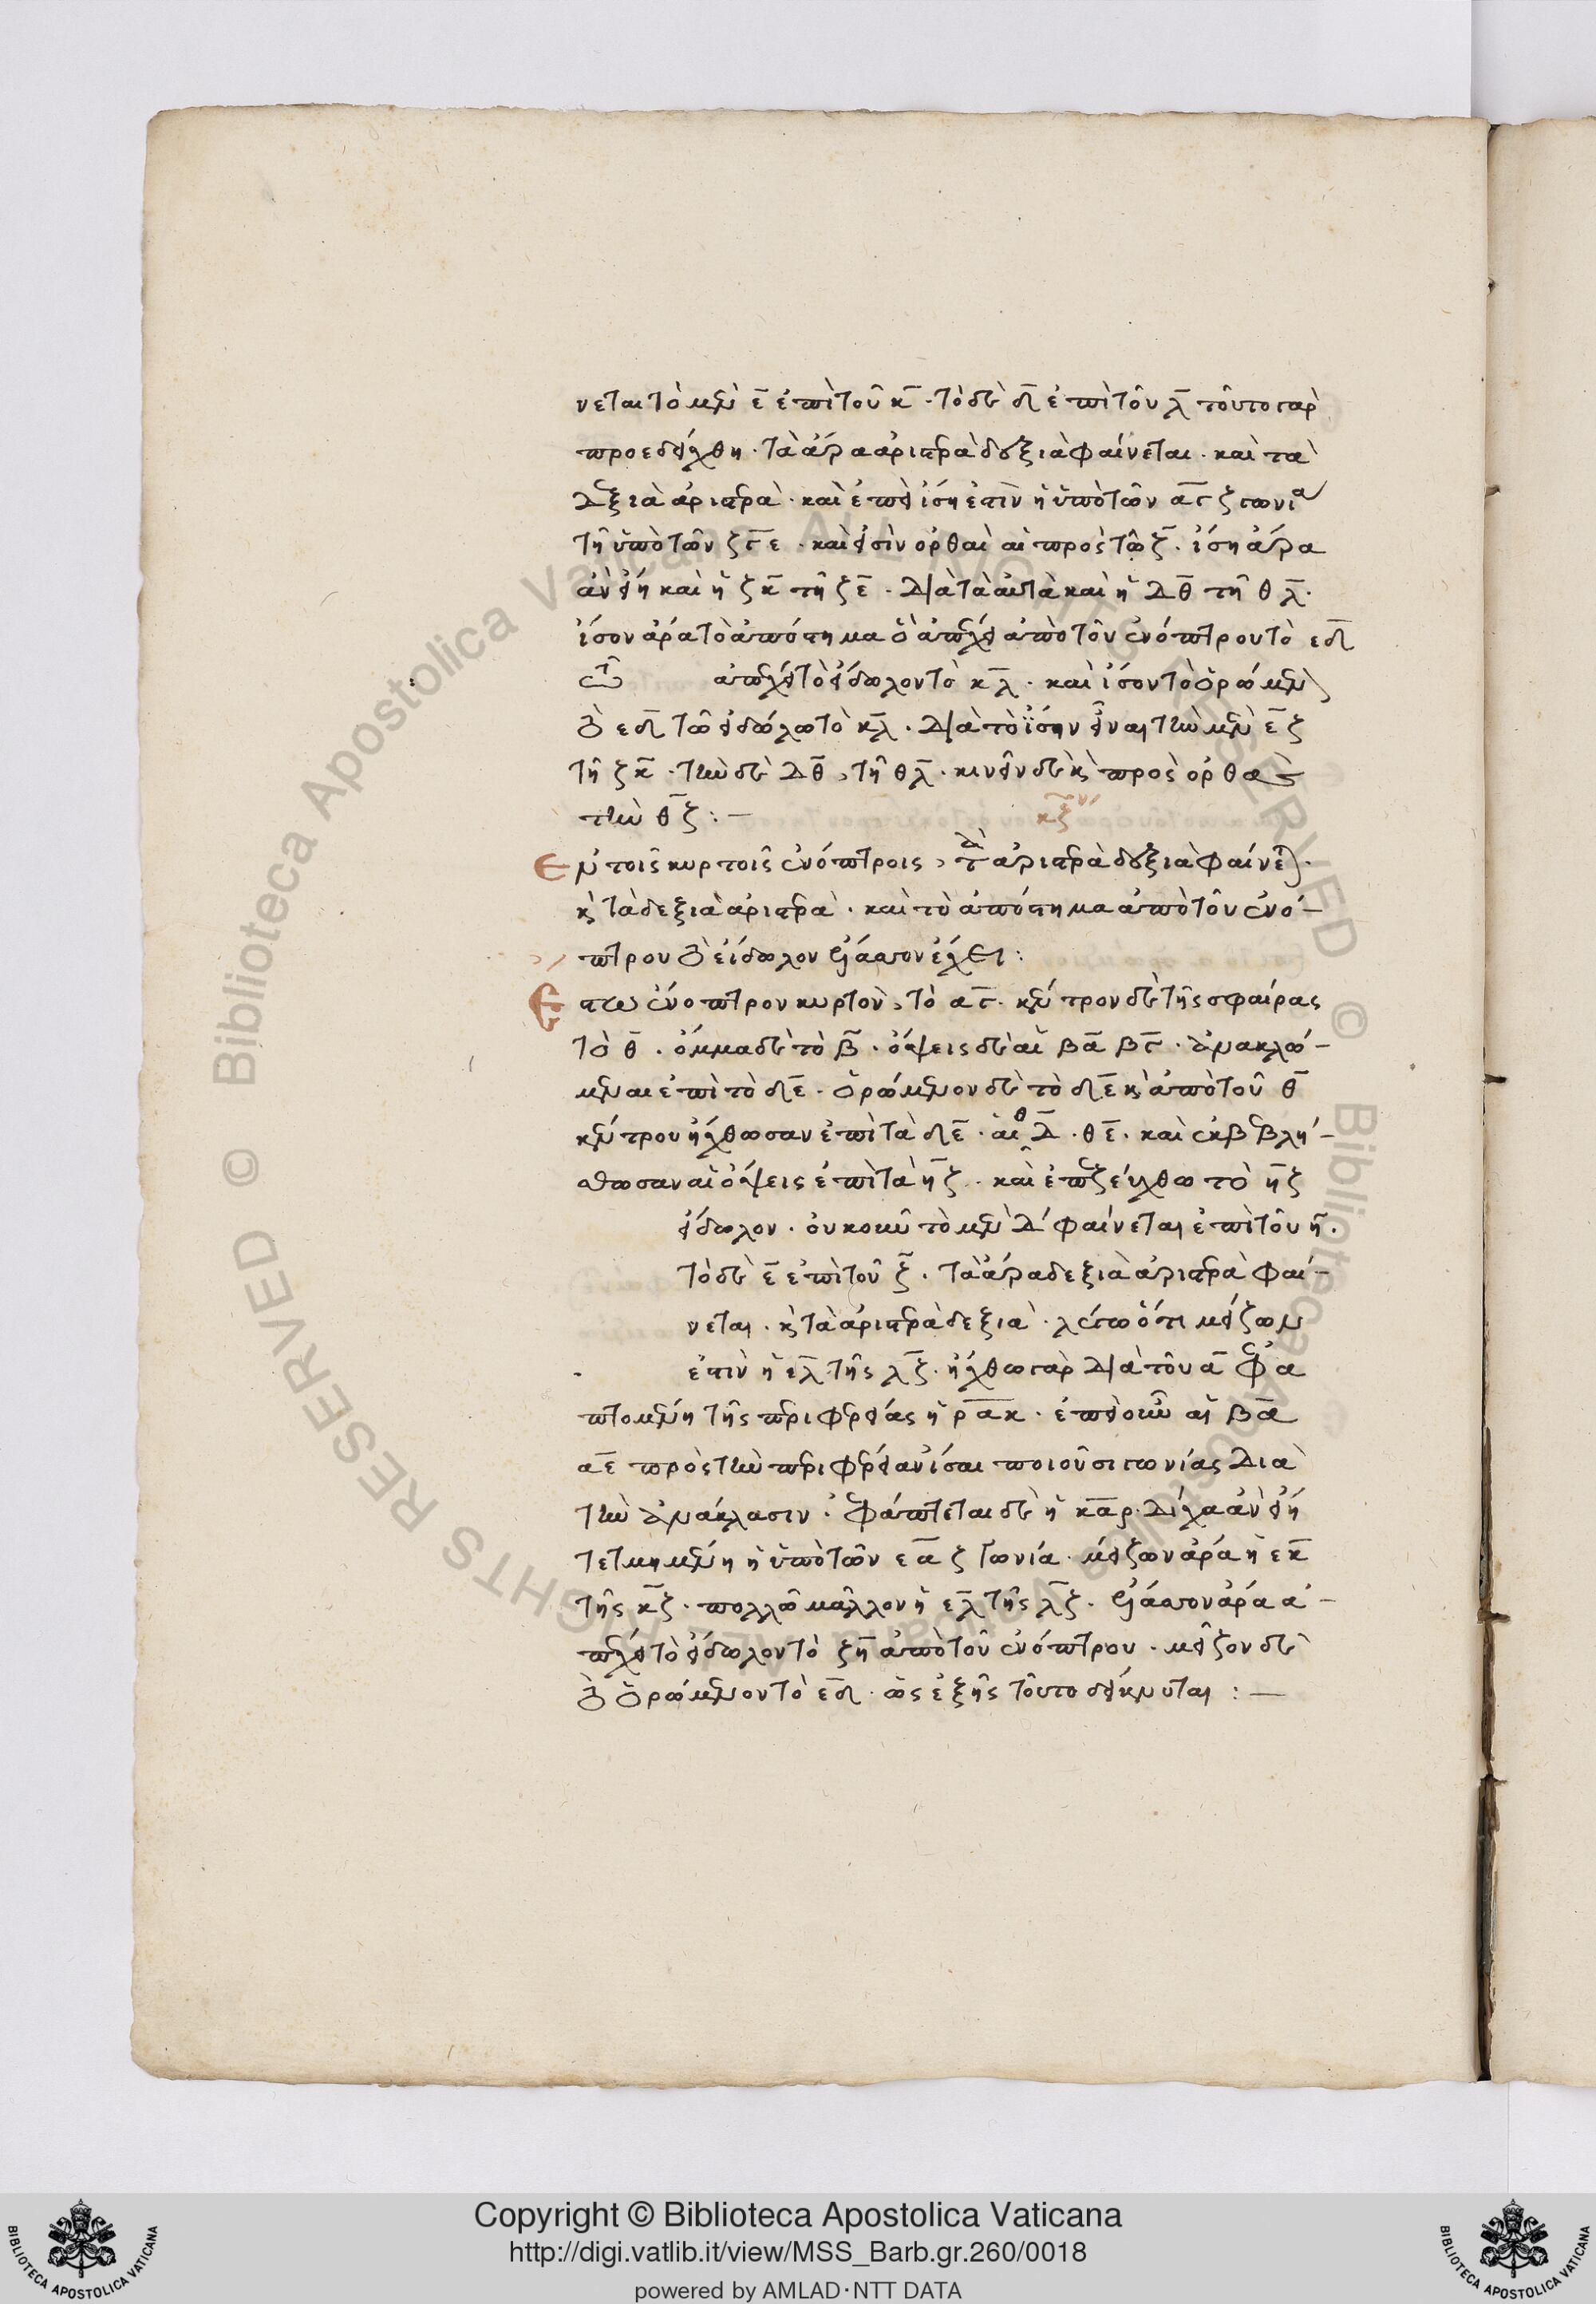 νεται τὸ μὲν ε̅ ἐπὶ τοῦ κ̅ · τὸ δὲ δ̅ ἐπὶ τοῦ λ̅ τοῦτο γὰρ
προεδείχθη · τὰ ἄρα ἀριστερὰ δεξιὰ φαίνεται · καὶ τὰ
δεξιὰ ἀριστερὰ · καὶ ἐπεὶ ἴση ἐστὶν ἡ ὑπὸ τῶν α̅γ̅ ζ γωνία
τῇ ὑπὸ τῶν ζγ̅ε · καὶ εἰσὶν ὀρθαὶ αἱ πρὸς τῶ ζ̅ · ἴση ἄρα
ἂν εἴη καὶ ἡ ζκ̅ τῇ ζε̅ · διὰ τὰ αὐτὰ καὶ ἡ δθ̅ τῇ θλ̅ ·
ἴσον ἄρα τὸ ἀπόστημα ὃ ἀπέχει ἀπὸ τοῦ ἐνόπτρου τὸ εδ̅
ἀπέχει τὸ εἴδωλον τὸ κ̅λ · καὶ ἴσον τὸ ὁρώμενον
τὸ εδ̅ τῶ εἰδώλω τὸ κ̅λ · διὰ τὸ ἴσην εἶναι τὴν μὲν ε̅ζ
τῇ ζκ̅ · τὴν δὲ δθ̅, τῇ θλ̅ · κινεῖν δὲ κ̀ πρὸς ὀρθὰς
τὴν θ̅ζ : —
Εν τοῖς κυρτοῖς ἐνόπτροις, τὰ ἀριστερὰ δεξιὰ φαίνεται ·
κ̀ τὰ δεξιὰ ἀριστερὰ · καὶ τὸ ἀπόστημα ἀπὸ τοῦ ἐνό-
πτρου τὸ εἴδωλον ἔλασσον ἔχει :
Εστω ἔνοπτρον κυρτὸν, τὸ αγ̅ · κέντρον δὲ τῆς σφαίρας
τὸ θ̅ · ὄμμα δὲ τὸ β̅ · ὄψεις δὲ αἱ βα̅ βγ̅ · ἀνακλώ-
μεναι ἐπὶ τὸ δε̅ · ὁρώμενον δὲ τὸ δε̅ κ̀ ἀπὸ τοῦ θ̅
κέντρου ἤχθωσαν ἐπὶ τὰ δε̅ · αἱ θδ̅ · θε̅ · καὶ ἐκβεβλή-
σθωσαν αἱ ὄψεις ἐπὶ τὰ η̅ζ · καὶ ἐπεζεύχθω τὸ η̅ζ
εἴδωλον · οὐκοῦν τὸ μὲν δ φαίνεται ἐπὶ τοῦ η̅ ·
τὸ δὲ ε̅ ἐπὶ τοῦ ζ̅ · τὰ ἄρα δεξιὰ ἀριστερὰ φαί-
νεται · κ̀ τὰ ἀριστερὰ δεξιὰ · λέγω ὅτι μείζων
ἐστὶν ἡ ελ̅ τῆς λ̅ζ · ἤχθω γὰρ διὰ τοῦ α̅ ἐφα
πτομένη τῆς περιφερείας ἡ ρ̅α̅κ · ἐπεὶ οὖν αἱ βα̅
αε̅ πρὸς τὴν περιφέρειαν ἴσαι ποιοῦσι γωνίας διὰ
τὴν ἀνάκλασιν · ἐφάπτεται δὲ ἡ κ̅α̅ρ · δίχα ἂν εἴη
τετμημένη ἡ ὑπὸ τῶν εα̅ζ γωνία · μείζων ἄρα ἡ εκ̅
τῆς κ̅ζ · πολλῶ μᾶλλον ἡ ελ̅ τῆς λ̅ζ · ἔλασσον ἄρα ἀ-
πέχει τὸ εἴδωλον τὸ ζη̅ ἀπὸ τοῦ ἐνόπτρου · μεῖζον δὲ
τὸ ὁρώμενον τὸ εδ̅ · ὡς ἑξῆς τοῦτο δείκνυται : —
Copyright © Biblioteca Apostolica Vaticana
http://digi.vatlib.it/view/MSS_Barb.gr.260/0018
powered by AMLAD·NTT DATA
BIBLIOTECA APOSTOLICA VATICANA
BIBLIOTECA APOSTOLICA VATICANA